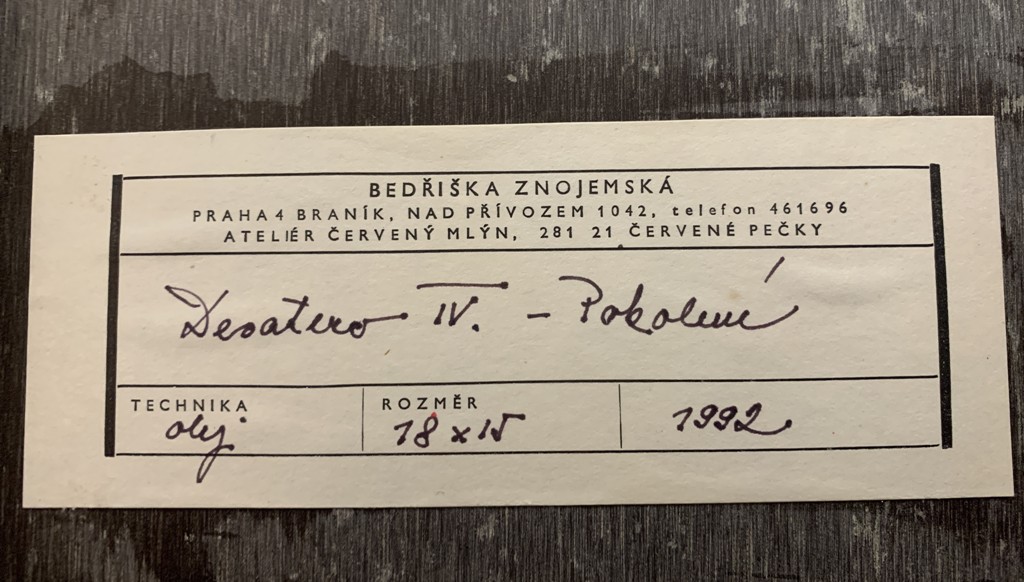 BEDŘIŠKA ZNOJEMSKÁ
PRAHA 4 BRANÍK, NAD PŘÍVOZEM 1042, telefon 461696
ATELIÉR ČERVENÝ MLÝN, 281 21 ČERVENÉ PEČKY
Desatero IV. – Pokolení
TECHNIKA ROZMĚR
olej 18 x 15 1992.